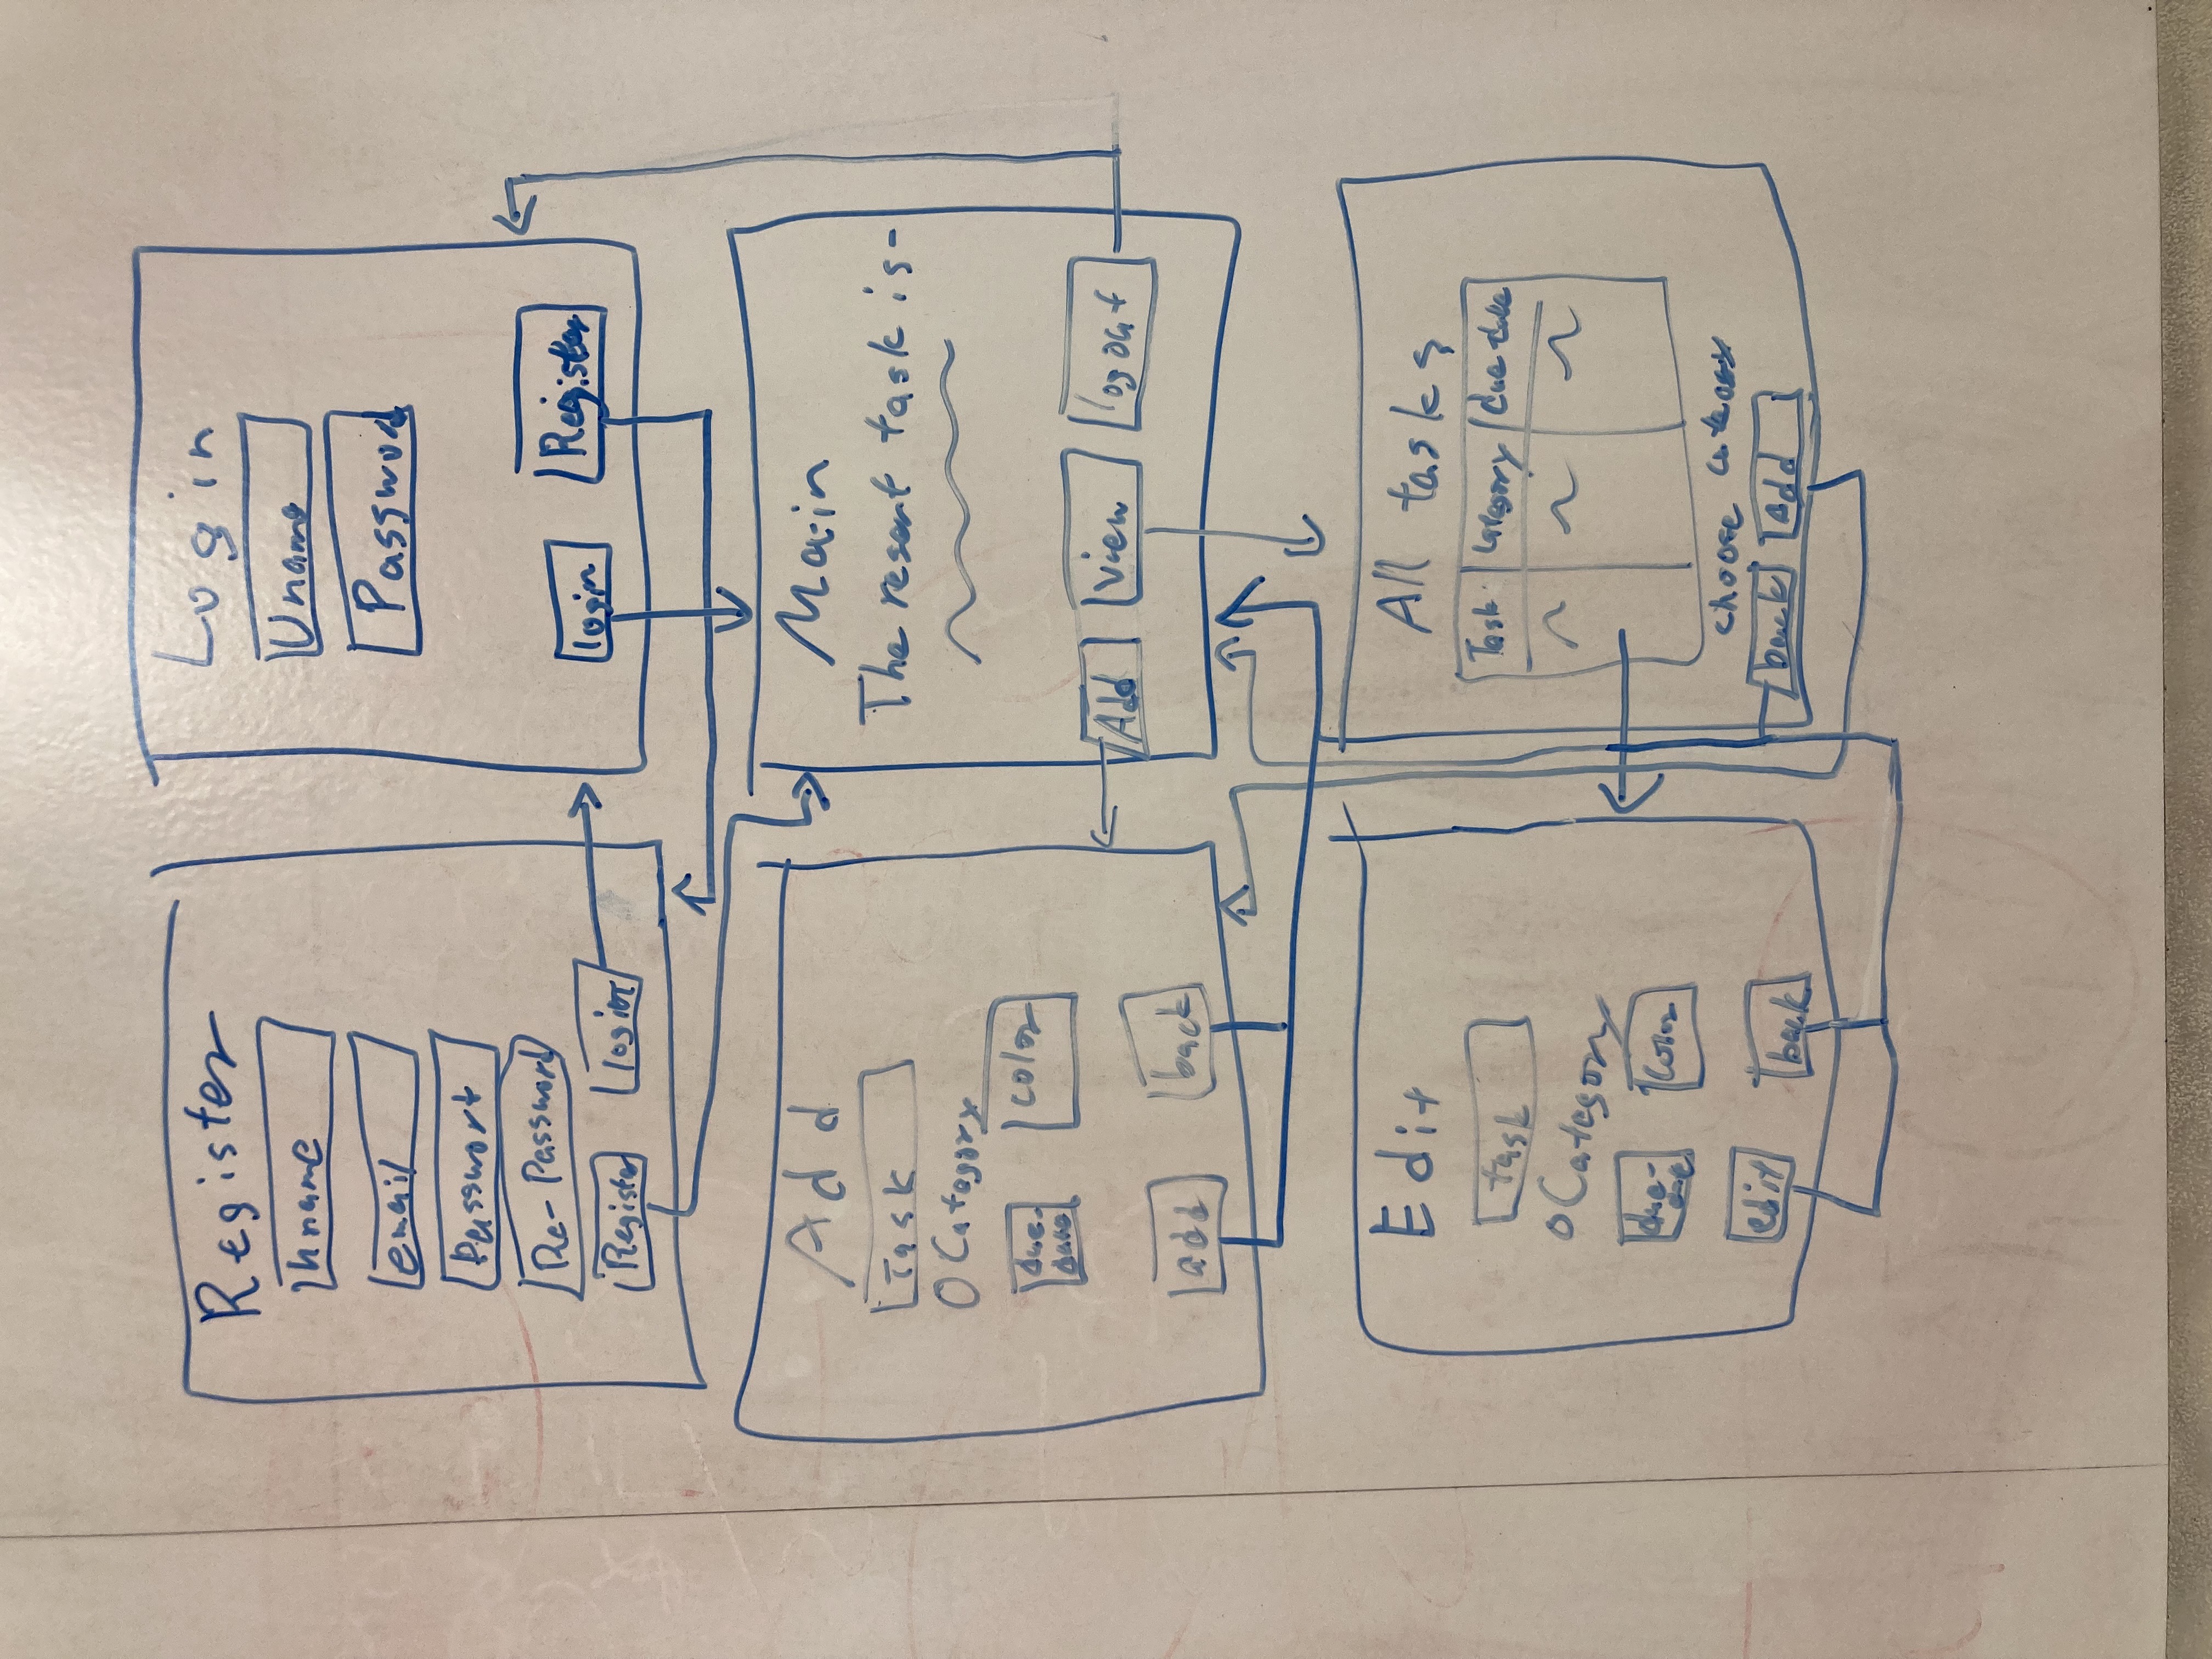 Register
Uname
email
Passwort
Re-Password
Register login
Login
Uname
Password
login Register
Add
Task
Category
due-date color
add back
Main
The resent task is-
Add view logout
Edit
task
Category
due- color
edit back
All tasks
Task category due date
choose category
back add